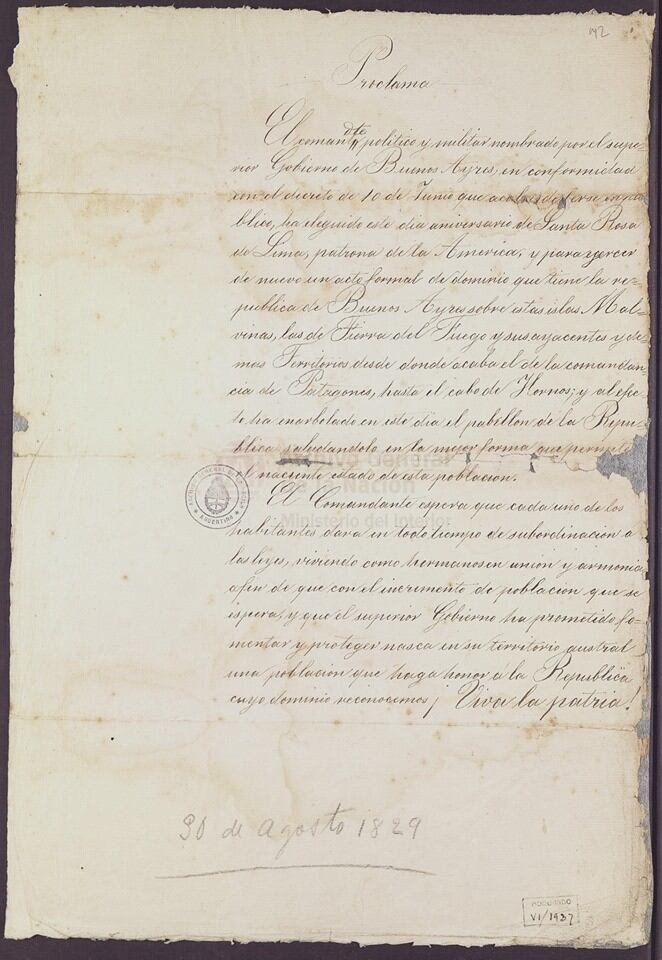 142
Proclama
El coman dte político y militar nombrado por el supe-
rior Gobierno de Buenos Ayres, en conformidad
con el decreto de 10 de Junio que acaba de leerse en pu-
blico, ha elegido este dia aniversario de Santa Rosa
de Lima, patrona de la America, y para ejercer
de nuevo un acto formal de dominio que tiene la re-
publica de Buenos Ayres sobre estas islas Mal-
vinas, las de Tierra del Fuego y sus ayacentes y de-
mas Territorios desde donde acaba el de la comandan-
cia de Patagones, hasta el cabo de Hornos; y al efec-
to ha enarbolado en este dia el pabellon de la Repu-
blica saludandolo en la mejor forma que permite
el naciente estado de esta poblacion.
El Comandante espera que cada uno de los
habitantes dara en todo tiempo de subordinacion a
las leyes, viviendo como hermanos en union y armonia
afin de que con el incremento de poblacion que se
espera, y que el superior Gobierno ha prometido fo-
mentar y proteger nasca en su territorio austral
una poblacion que haga honor á la Republica
cuyo dominio reconocemos ¡Viva la patria!
30 de agosto 1829
Archivo General
de la Nación
Ministerio del Interior
ARGENTINA
VI/1937